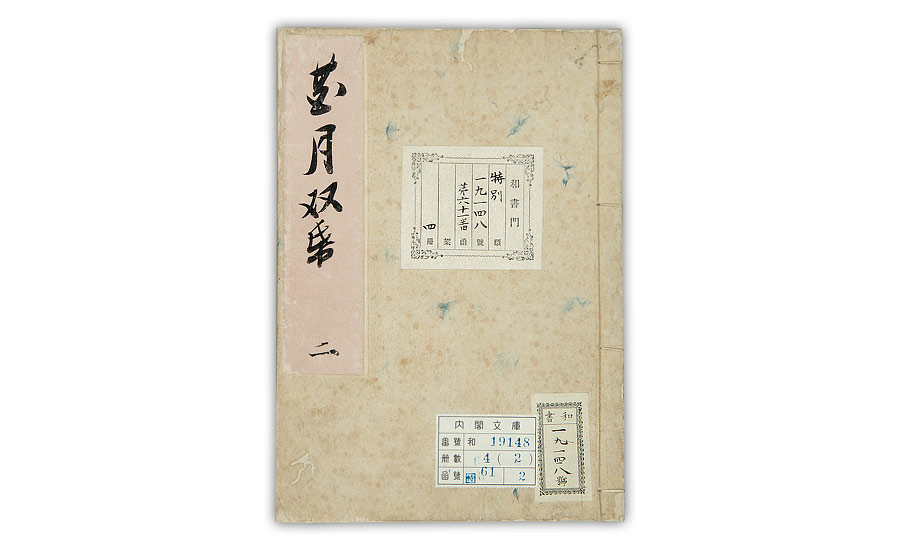 花月双帋
二
和書門
特別 類
一九一四八 號
六十一 函
架
四 冊
内閣文庫
番號 和 19148
冊數 4 ( 2 )
函號 特 61 2
和書
一九一四八號